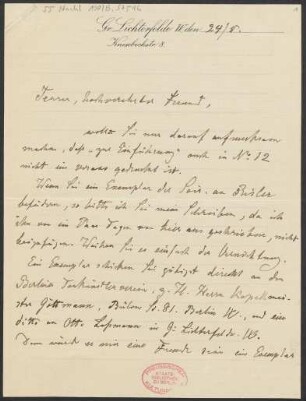 55 Nachl
Gr. Lichterfelde W. den 24/5.
Knesebeckstr 8.
Teurer, hochverehrter Freund,
wollte Sie nur darauf aufmerksam
machen, daß "zur Einführung" auch in No 12
nicht im voraus gedruckt ist.
Wenn Sie ein Exemplar der an
befördern, so bitte ich Sie mein Schreiben, da ich
ihm vor ein Paar Tagen von hier aus geschrieben, nicht
beizufügen. Weihen Sie es einfach der Vernichtung.
Ein Exemplar schicken Sie gütigst direkt an den
Berliner Tonkünstlerverein, z. H. Herrn Kapellmei-
ster Göttmann, Bülow St. 81. Berlin W., und ein
ditto an Otto Leßmann in Gr. Lichterfelde.
Dann würde es mir eine Freude sein ein Exemplar